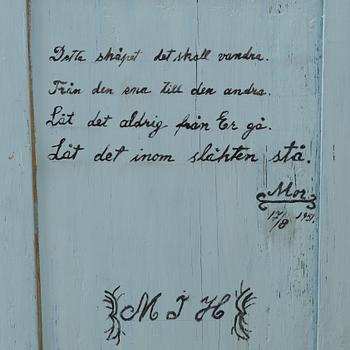 Detta skåpet det skall vandra.
Från den ena till den andra.
Låt det aldrig från Er gå.
Låt det inom släkten stå.
Mor.
17/8
M J H